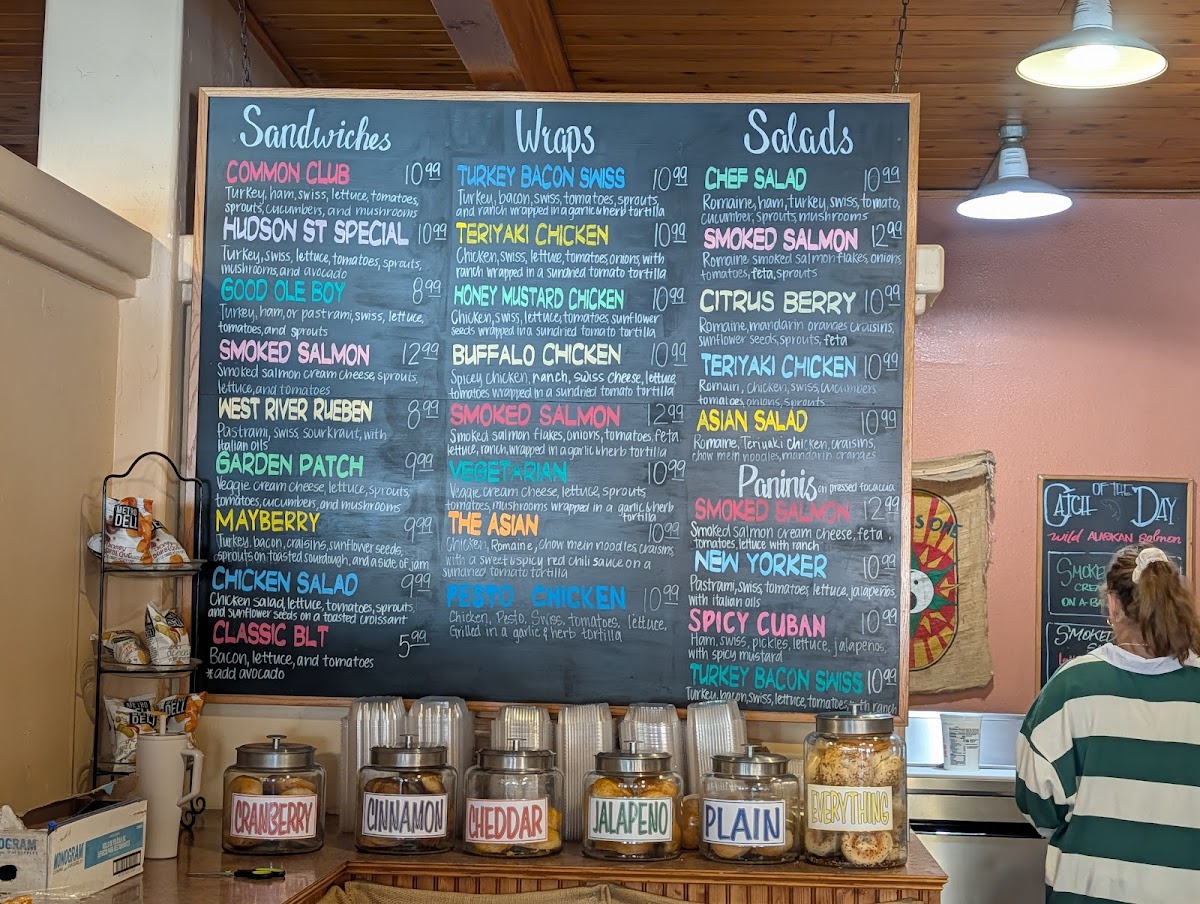 Sandwiches
COMMON CLUB 10.99
Turkey, ham, swiss, lettuce, tomatoes,
sprouts, cucumbers, and mushrooms
HUDSON ST SPECIAL 10.99
Turkey, swiss, lettuce, tomatoes, sprouts,
mushrooms, and avocado
GOOD OLE BOY 8.99
Turkey, ham, or pastrami, swiss, lettuce,
tomatoes, and sprouts
SMOKED SALMON 12.99
Smoked salmon cream cheese, sprouts,
lettuce, and tomatoes
WEST RIVER RUEBEN 8.99
Pastrami, swiss, sourkraut, with
italian oils
GARDEN PATCH 9.99
Veggie cream cheese, lettuce, sprouts,
tomatoes, cucumbers, and mushrooms
MAYBERRY 9.99
Turkey, bacon, craisins, sunflower seeds,
sprouts on toasted sourdough, and a side of jam
CHICKEN SALAD 9.99
Chicken salad, lettuce, tomatoes, sprouts,
and sunflower seeds on a toasted croissant
CLASSIC BLT 5.99
Bacon, lettuce, and tomatoes
*add avocado
Wraps
TURKEY BACON SWISS 10.99
Turkey, bacon, swiss, tomatoes, sprouts,
and ranch wrapped in a garlic & herb tortilla
TERIYAKI CHICKEN 10.99
Chicken, swiss, lettuce, tomatoes, onions, with
ranch wrapped in a sundried tomato tortilla
HONEY MUSTARD CHICKEN 10.99
Chicken, swiss, lettuce, tomatoes, sunflower
seeds wrapped in a sundried tomato tortilla
BUFFALO CHICKEN 10.99
Spicy chicken, ranch, swiss cheese, lettuce,
tomatoes wrapped in a sundried tomato tortilla
SMOKED SALMON 12.99
Smoked salmon flakes, onions, tomatoes, feta
lettuce, ranch, wrapped in a garlic & herb tortilla
VEGETARIAN 10.99
Veggie cream cheese, lettuce, sprouts
tomatoes, mushrooms wrapped in a garlic & herb
tortilla
THE ASIAN 10.99
Chicken, Romaine, chow mein noodles, craisins,
with a sweet & spicy red chili sauce on a
sundried tomato tortilla
PESTO CHICKEN 10.99
Chicken, Pesto, Swiss, tomatoes, lettuce,
Grilled in a garlic & herb tortilla
Salads
CHEF SALAD 10.99
Romaine, ham, turkey, swiss, tomato,
cucumber, sprouts, mushrooms
SMOKED SALMON 12.99
Romaine smoked salmon flakes, onions
tomatoes, feta, sprouts
CITRUS BERRY 10.99
Romaine, mandarin oranges craisins,
sunflower seeds, sprouts, feta
TERIYAKI CHICKEN 10.99
Romain, chicken, swiss, cucumbers
tomatoes, onions, sprouts
ASIAN SALAD 10.99
Romaine, Teriyaki chicken, craisins,
chow mein noodles, mandarin oranges
Paninis on pressed focaccia
SMOKED SALMON 12.99
Smoked salmon cream cheese, feta,
tomatoes, lettuce with ranch
NEW YORKER 10.99
Pastrami, swiss, tomatoes, lettuce, jalapenos,
with italian oils
SPICY CUBAN 10.99
Ham, swiss, pickles, lettuce, jalapenos,
with spicy mustard
TURKEY BACON SWISS 10.99
Turkey, bacon, swiss, lettuce, tomatoes with ranch
CATCH OF THE DAY
wild ALASKAN Salmon
SMOKED
CRE
ON A BA
SMOKE
METRO DELI
CRANBERRY
CINNAMON
CHEDDAR
JALAPENO
PLAIN
EVERYTHING
MONOGRAM